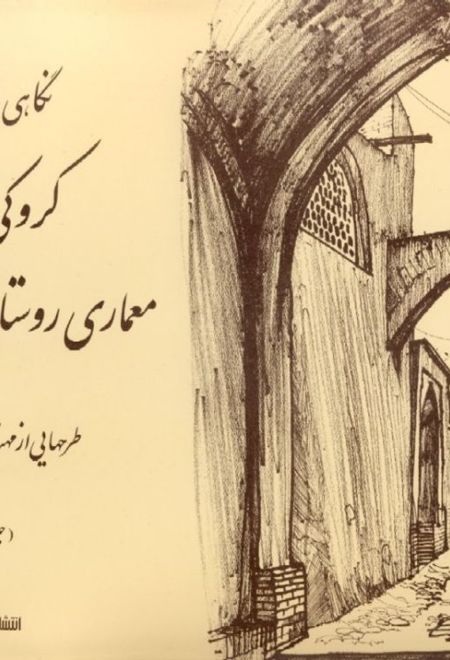 نگاهی
کروکی
معماری روستا
طرحهایی از مهند
(ج
انتشا